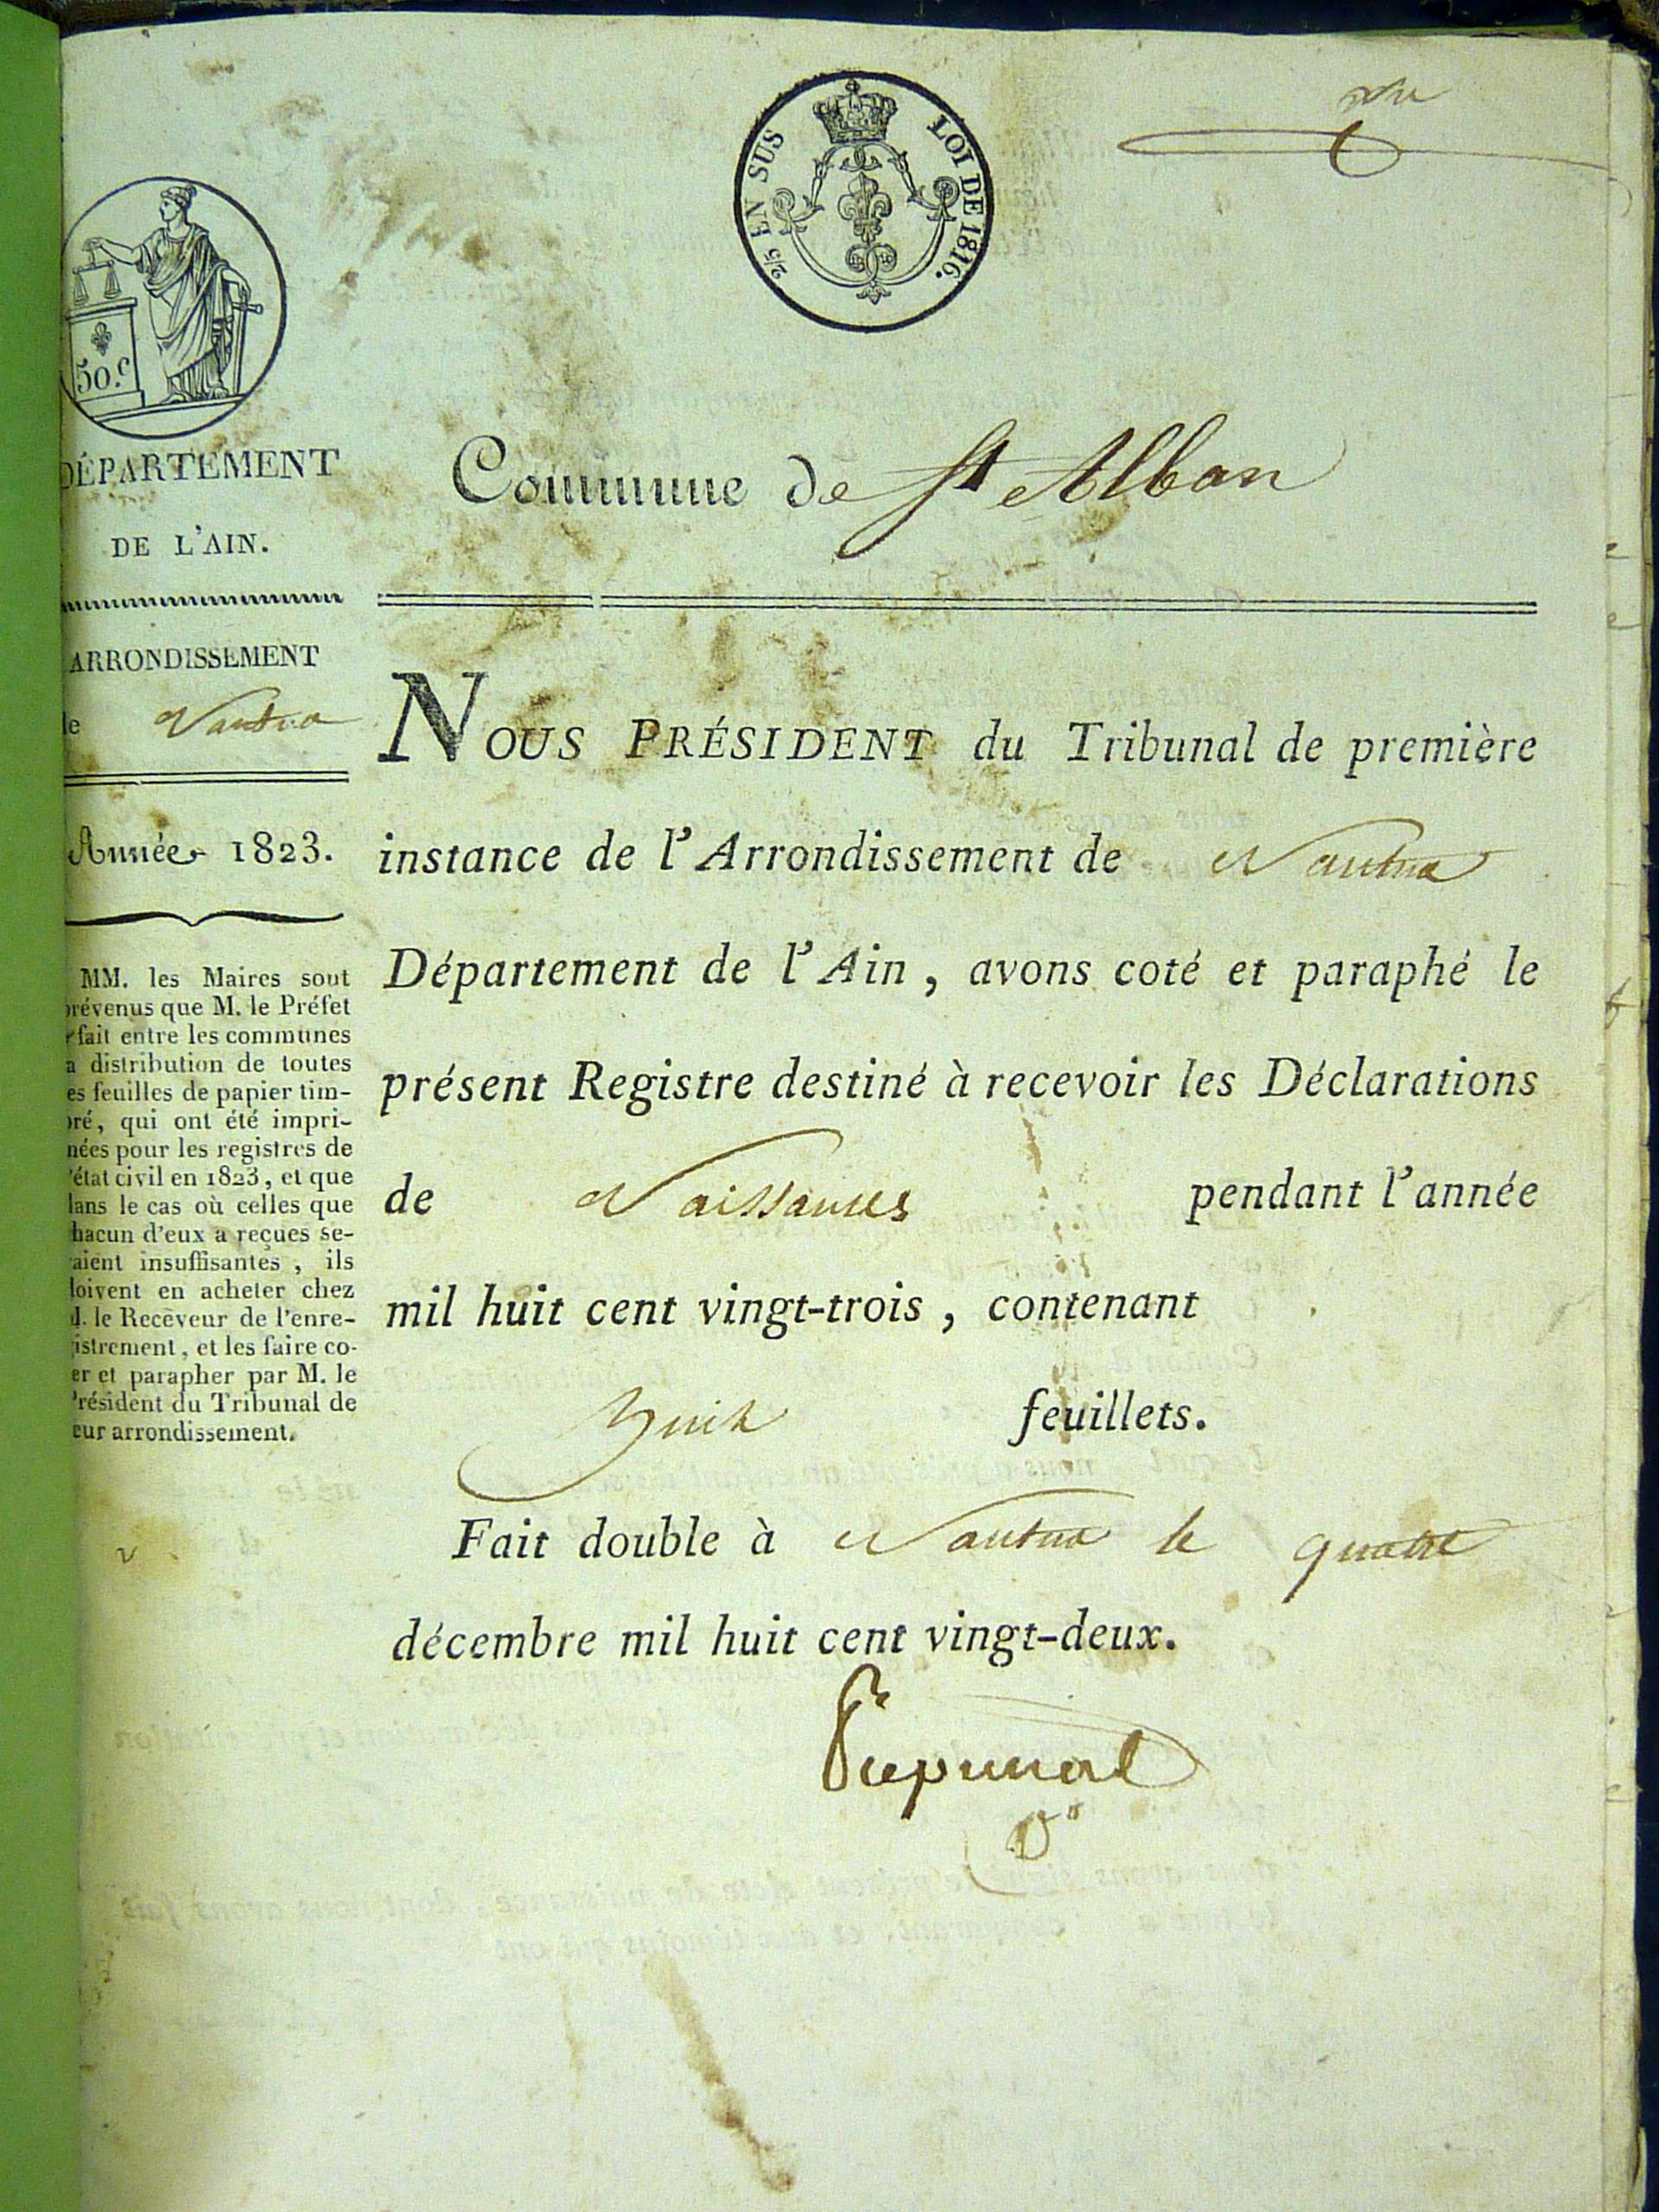 2/5 EN SUS
LOI DE 1816.
50.c
DÉPARTEMENT
DE L'AIN.
ARRONDISSEMENT
de Nantua
Année 1823.
MM. les Maires sont
prévenus que M. le Préfet
fait entre les communes
a distribution de toutes
es feuilles de papier tim-
bré, qui ont été impri-
mées pour les registres de
l'état civil en 1823, et que
dans le cas où celles que
chacun d'eux a reçues se-
raient insuffisantes, ils
doivent en acheter chez
M. le Receveur de l'enre-
gistrement, et les faire co-
er et parapher par M. le
Président du Tribunal de
eur arrondissement.
Commune de St Alban
NOUS PRÉSIDENT du Tribunal de première
instance de l'Arrondissement de Nantua
Département de l'Ain, avons coté et paraphé le
présent Registre destiné à recevoir les Déclarations
de Naissances pendant l'année
mil huit cent vingt-trois, contenant
huit feuillets.
Fait double à Nantua le quatre
décembre mil huit cent vingt-deux.